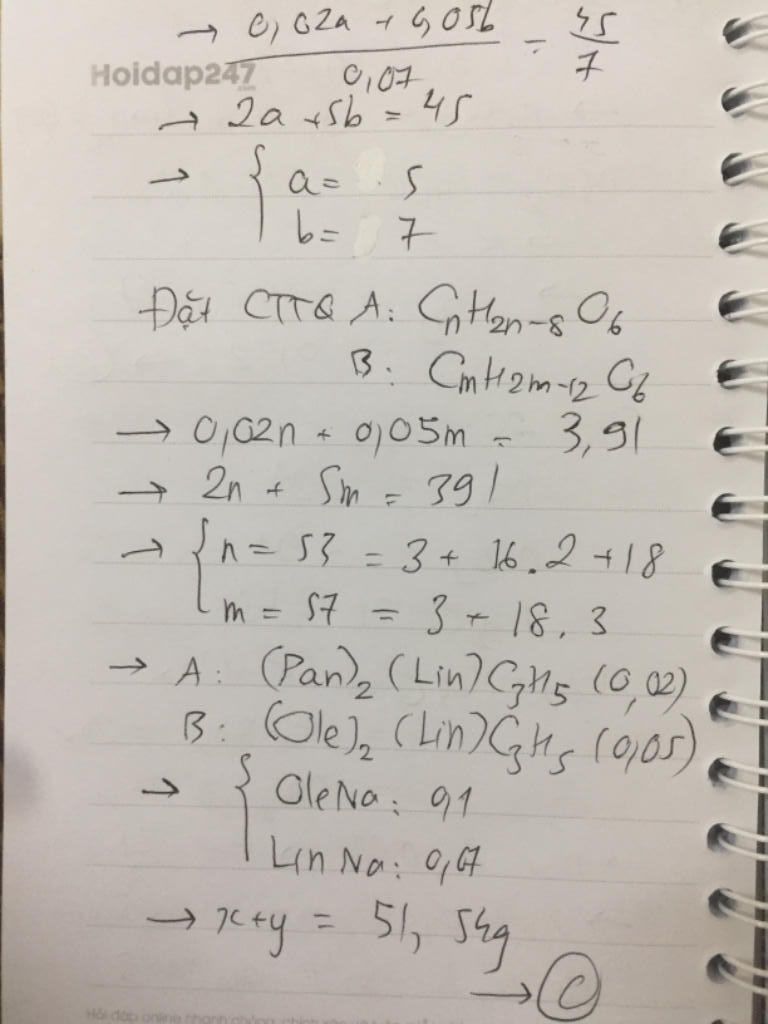 → 0,02a + 0,05b / 0,07 = 45/7
Hoidap247
.com
→ 2a + 5b = 45
→ { a = 5
b = 7
Đặt CTTQ A: CnH2n-8O6
B: CmH2m-12O6
→ 0,02n + 0,05m = 3,91
→ 2n + 5m = 391
→ { n = 53 = 3 + 16.2 + 18
m = 57 = 3 + 18.3
→ A: (Pan)2(Lin)C3H5 (0,02)
B: (Ole)2(Lin)C3H5 (0,05)
→ { OleNa: 0,1
LinNa: 0,07
→ x+y = 51,54g
→ C
Hỏi đáp online nhanh chóng, chính xác